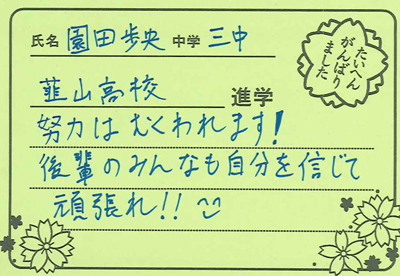 氏名 園田歩央 中学 三中
たいへん
がんばり
ました
韮山高校 進学
努力はむくわれます!
後輩のみんなも自分を信じて
頑張れ!!